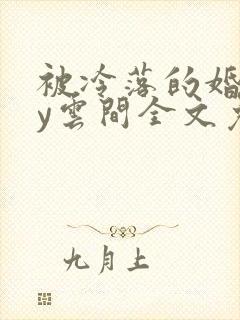 被冷落的婚
y雲間全文
九月上